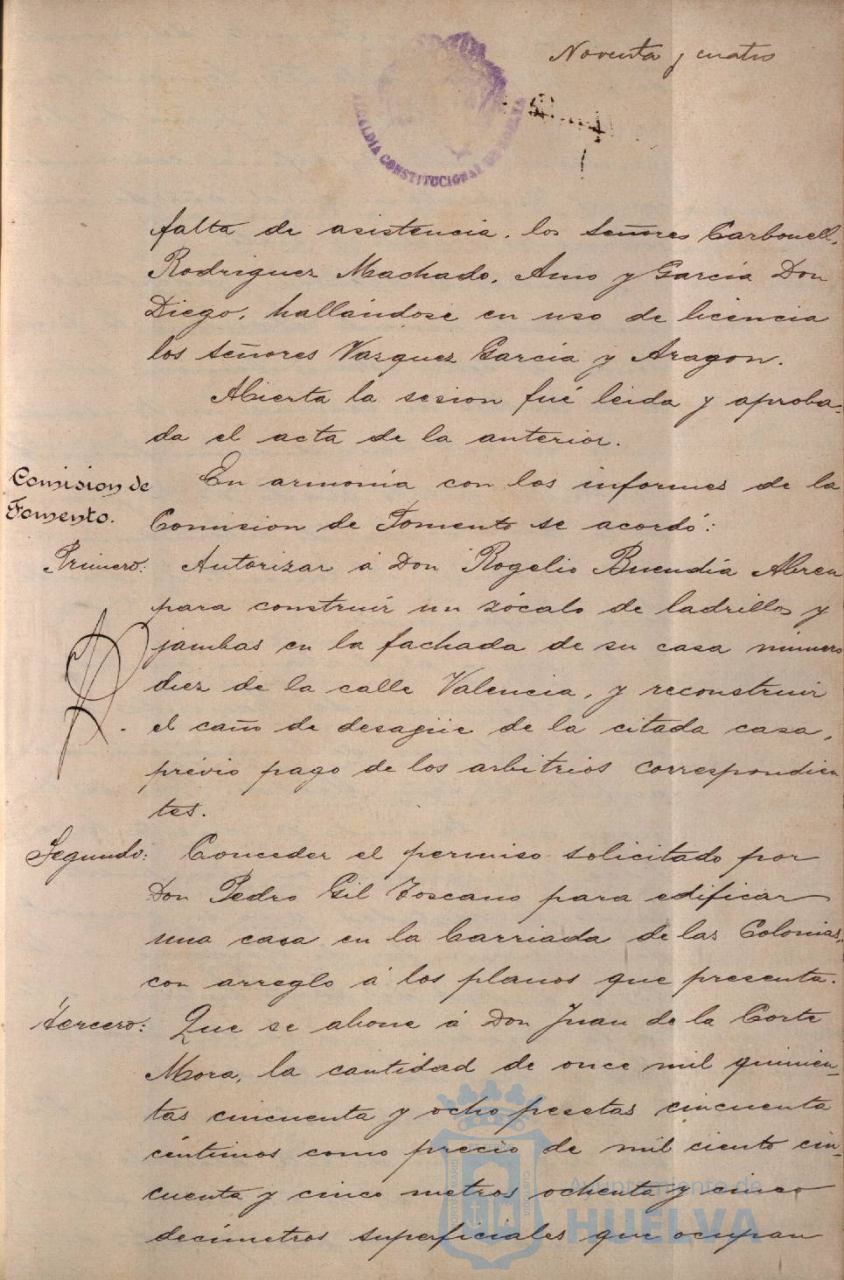 Noventa y cuatro
ALCALDIA CONSTITUCIONAL DE HUELVA
falta de asistencia, los señores Carbonell,
Rodriguez Machado, Amo y García Don
Diego, hallándose en uso de licencia
los señores Vazquez García y Aragon.
Abierta la sesion fué leida y aproba-
da el acta de la anterior.
Comision de
Fomento.
En armonía con los informes de la
Comision de Fomento se acordó:
Primero: Autorizar á Don Rogelio Buendía Abreu
para construir un zócalo de ladrillos y
jambas en la fachada de su casa número
diez de la calle Valencia, y reconstruir
el caño de desagüe de la citada casa,
prévio pago de los arbitrios correspondien
tes.
Segundo: Conceder el permiso solicitado por
Don Pedro Gil Toscano para edificar
una casa en la barriada de las Colonias,
con arreglo á los planos que presenta.
Tercero: Que se abone á Don Juan de la Corte
Mora, la cantidad de once mil quinien-
tas cincuenta y ocho pesetas cincuenta
céntimos como precio de mil ciento cin-
cuenta y cinco metros ochenta y cinco
decímetros superficiales que ocupan
Ayuntamiento de
HUELVA